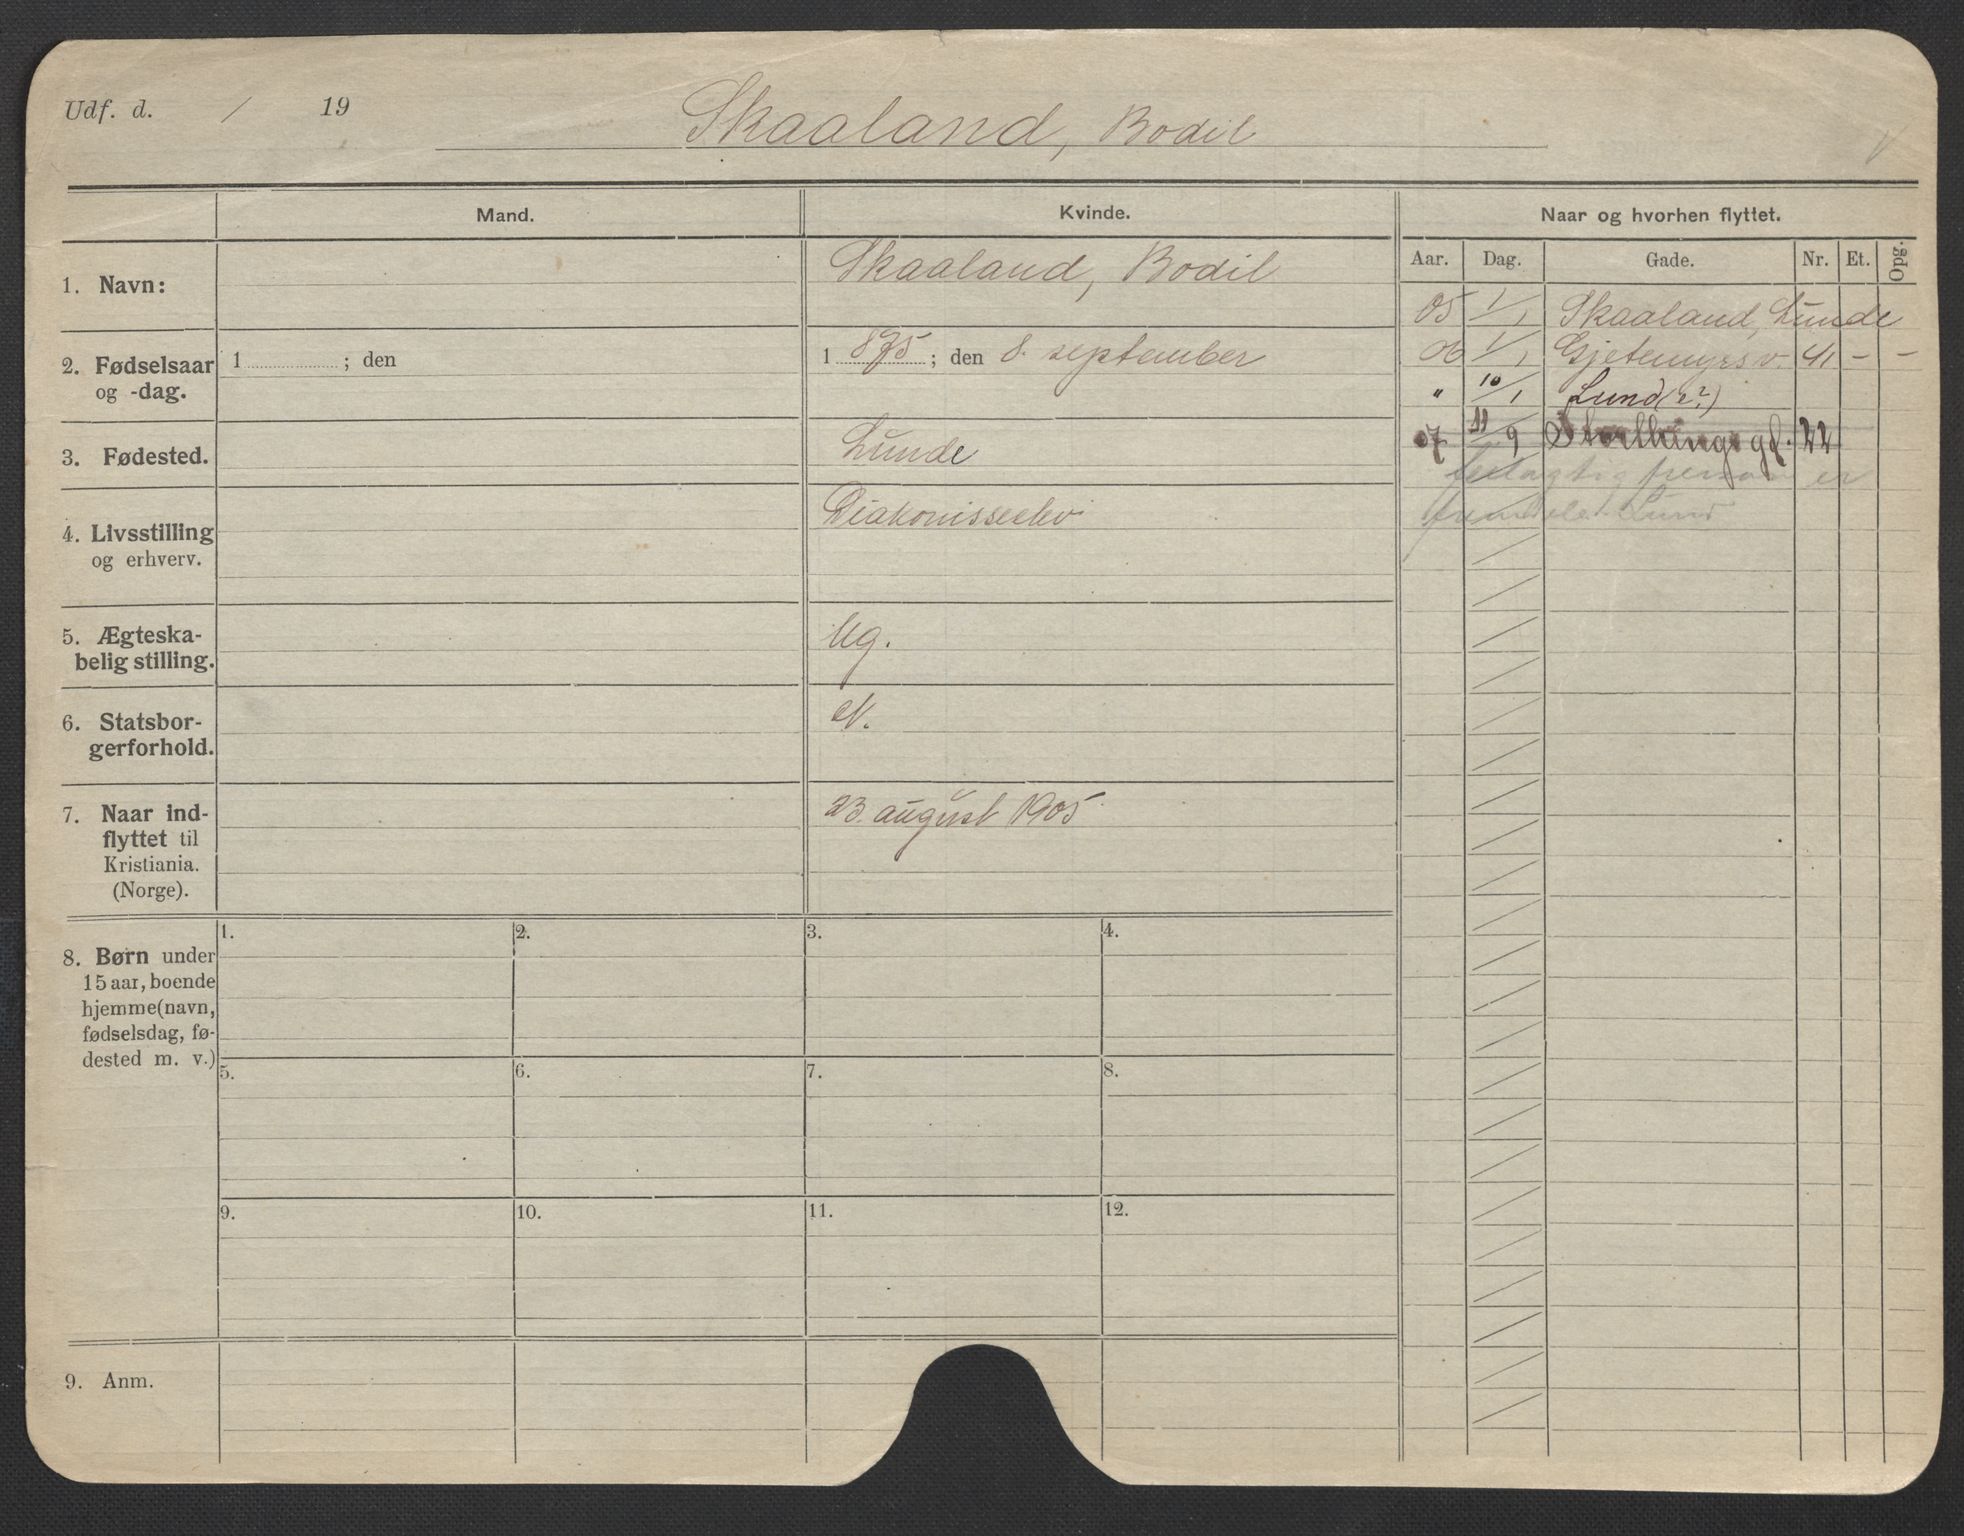 Udf. d. / 19
Skaaland, Bodil
Mand.
Kvinde.
Naar og hvorhen flyttet.
Aar. Dag. Gade. Nr. Et. Opg.
1. Navn:
Skaaland, Bodil
2. Fødselsaar
og -dag.
1 ; den
1 875 ; den 8. september
3. Fødested.
Lunde
4. Livsstilling
og erhverv.
Diakonisseelev
5. Ægteska-
belig stilling.
Ug.
6. Statsbor-
gerforhold.
N.
7. Naar ind-
flyttet til
Kristiania.
(Norge).
23. august 1905
05 1/1 Skaaland, Lunde
06 1/1 Gjetemyrsv. 41 - -
" 10/1 Lund(e?)
07 11/9 Storthingsgd. 22
er
Lund
8. Børn under
15 aar, boende
hjemme (navn,
fødselsdag, fø-
dested m. v.)
1. 2. 3. 4.
5. 6. 7. 8.
9. 10. 11. 12.
9. Anm.